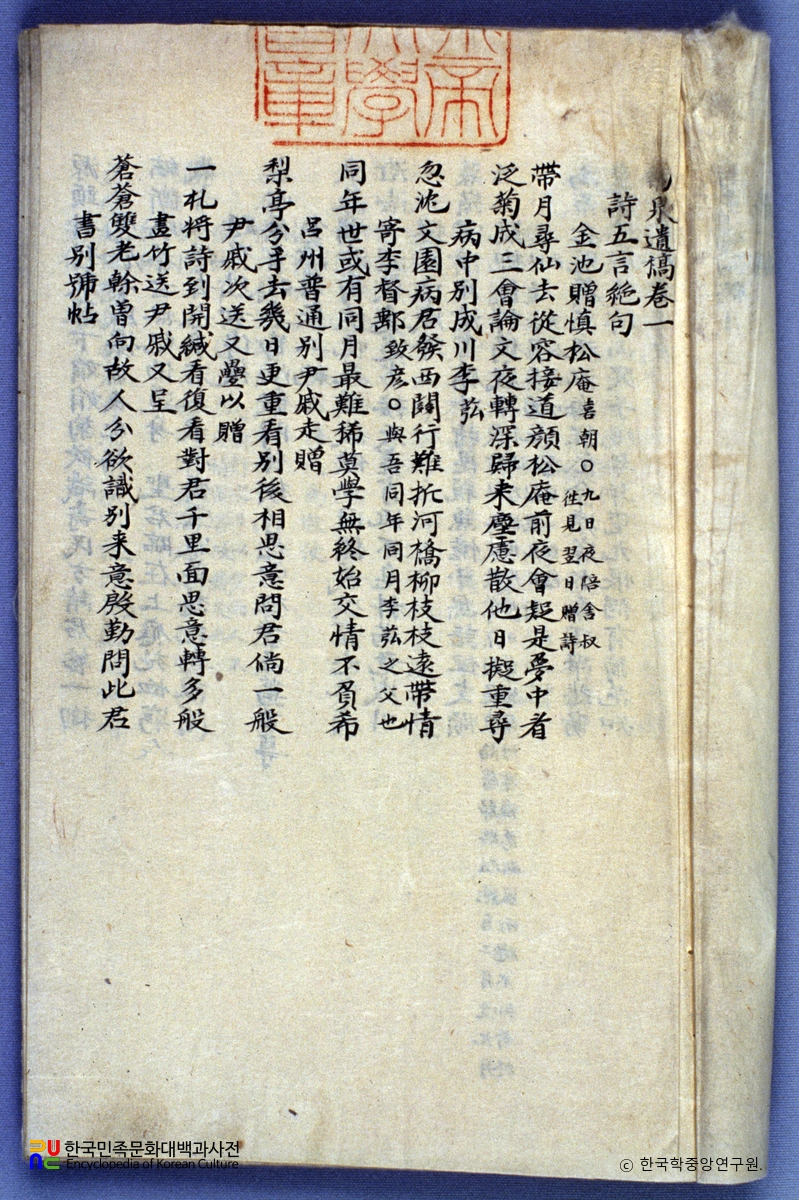 泉遺稿卷一
詩五言絶句
金池贈愼松庵喜朝○九日夜陪舍叔往見翌日贈詩
帶月尋仙去從容接道顔松庵前夜會疑是夢中看
泛菊成三會論文夜轉深歸来塵慮散他日擬重尋
病中別成川李弘
忽沱文園病君發西關行難折河橋柳枝枝遠帶情
寄李督郵致彦○與吾同年同月李弘之父也
同年世或有同月最難稀莫學無終始交情不負希
呂州普通別尹戚走贈
梨亭分手去幾日更重看別後相思意問君倘一般
尹戚次送又疊以贈
一札將詩到開緘看復看對君千里面思意轉多般
畫竹送尹戚又呈
蒼蒼雙老榦曽向故人分欲識別来意殷勤問此君
書別號帖
帝學章
한국민족문화대백과사전
Encyclopedia of Korean Culture
© 한국학중앙연구원.